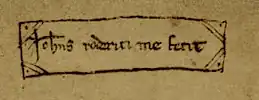 Johns roderici me fecit